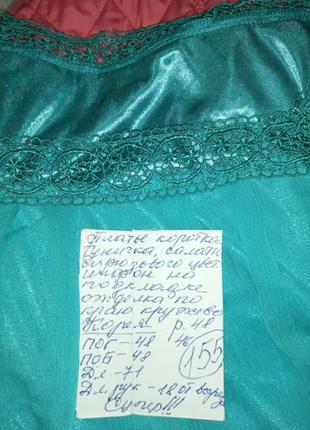 Платье коротка
туничка, салатн
бирюзового цвет.
шифон на
подкладке
отделка по
краю кружево
Корея р. 48
ПОГ - 48 46
ПОБ - 48 155
Дл - 71
Дл. рук - 18 от
Супер!!!